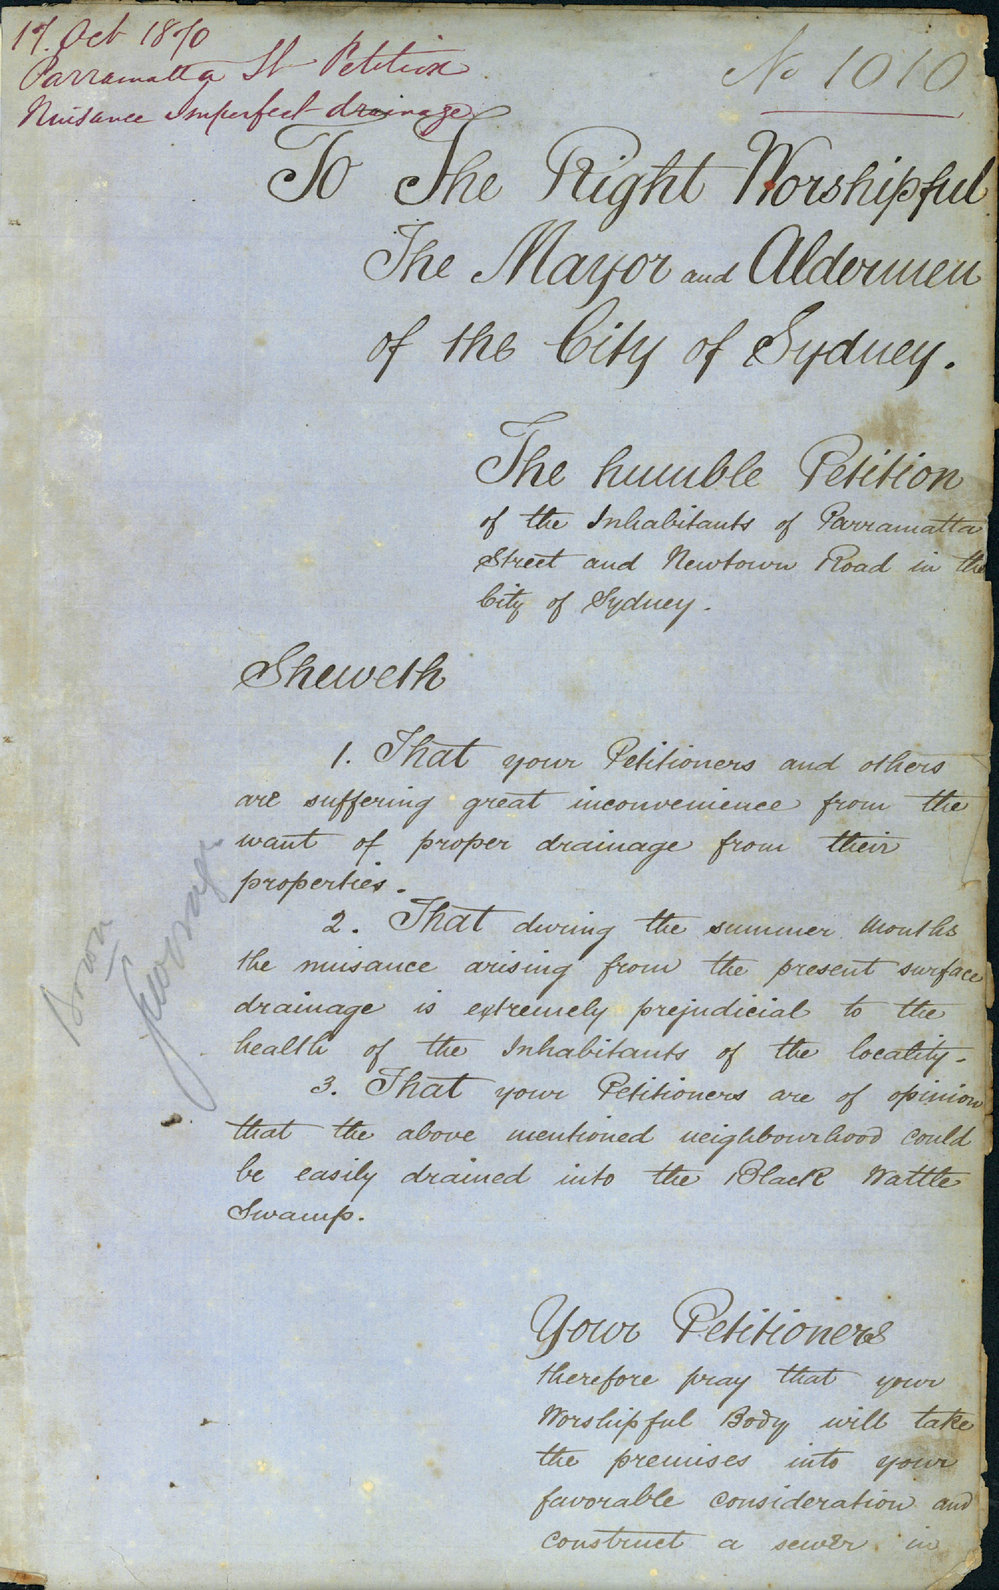 17. Oct 1870
Parramatta St Petition
Nuisance imperfect drainage
No 1010
To The Right Worshipful
The Mayor and Aldermen
of the City of Sydney.
The humble Petition
of the Inhabitants of Parramatta
Street and Newtown Road in the
City of Sydney.
Sheweth
1. That your Petitioners and others
are suffering great inconvenience from the
want of proper drainage from their
properties.
2. That during the summer months
the nuisance arising from the present surface
drainage is extremely prejudicial to the
health of the Inhabitants of the locality.
3. That your Petitioners are of opinion
that the above mentioned neighbourhood could
be easily drained into the Black Wattle
Swamp.
Your Petitioners
therefore pray that your
Worshipful Body will take
the premises into your
favorable consideration and
construct a sewer in